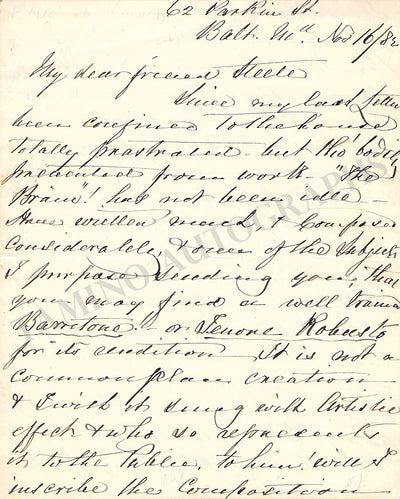 62 Parkin St.
Balt. Md. Nov 16/82
My dear friend Steele
Since my last letter
been confined to the house
totally prostrated - but tho' bodily
prevented from work - "The
Brain"! has not been idle -
Have written much & Composed
considerably & one of the subjects
I purpose sending you that
you may find a well trained
Barritone - or Tenore Robusto
for its rendition It is not a
common place creation
& I wish it sung with Artistic
effect & who so represents
it to the Public. to him! will I
inscribe the Composition
TAMINO AUTOGRAPHS